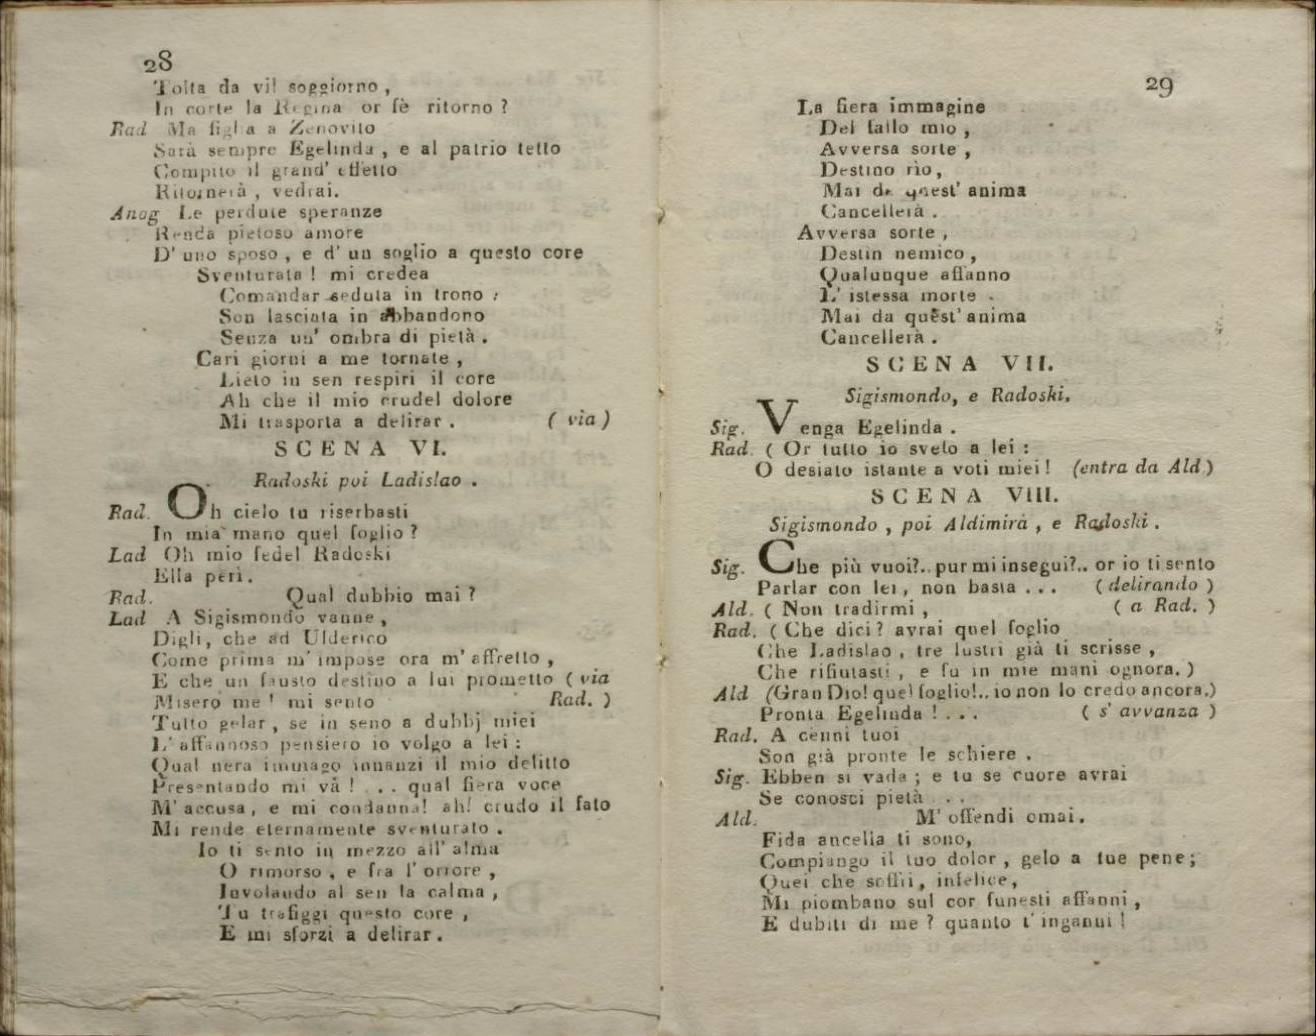 28
Tolta da vil soggiorno ,
In corte la Regina or fè ritorno ?
Rad Ma figlia a Zenovito
Sarà sempre Egelinda , e al patrio tetto
Compito il grand' effetto
Ritornerà , vedrai.
Anag Le perdute speranze
Renda pietoso amore
D' uno sposo , e d' un soglio a questo core
Sventurata ! mi credea
Comandar seduta in trono :
Son lasciata in abbandono
Senza un' ombra di pietà .
Cari giorni a me tornate ,
Lieto in sen respiri il core
Ah che il mio crudel dolore
Mi trasporta a delirar . ( via )
SCENA VI.
Radoski poi Ladislao .
Rad. Oh cielo tu riserbasti
In mia mano quel foglio ?
Lad Oh mio fedel Radoski
Ella perì .
Rad. Qual dubbio mai ?
Lad A Sigismondo vanne ,
Digli, che ad Ulderico
Come prima m' impose ora m' affretto ,
E che un fausto destino a lui prometto ( via
Misero me ! mi sento Rad. )
Tutto gelar , se in seno a dubbj miei
L' affannoso pensiero io volgo a lei :
Qual nera immago innanzi il mio delitto
Presentando mi và ! . . . qual fiera voce
M' accusa , e mi condanna! ah! crudo il fato
Mi rende eternamente sventurato .
Io ti sento in mezzo all' alma
O rimorso , e fra l' orrore ,
Involando al sen la calma ,
Tu trafiggi questo core ,
E mi sforzi a delirar .
29
La fiera immagine
Del fallo mio ,
Avversa sorte ,
Destino rìo,
Mai da quest' anima
Cancellerà .
Avversa sorte ,
Destin nemico ,
Qualunque affanno
L' istessa morte .
Mai da quest' anima
Cancellerà .
SCENA VII.
Sigismondo, e Radoski.
Sig. Venga Egelinda .
Rad. ( Or tutto io svelo a lei :
O desiato istante a voti miei ! (entra da Ald )
SCENA VIII.
Sigismondo , poi Aldimira , e Radoski .
Sig. Che più vuoi?.. pur mi insegui?.. or io ti sento
Parlar con lei , non basta . . . ( delirando )
Ald. ( Non tradirmi , ( a Rad. )
Rad. ( Che dici ? avrai quel foglio
Che Ladislao , tre lustri già ti scrisse ,
Che rifiutasti , e fu in mie mani ognora. )
Ald (Gran Dio! quel foglio!.. io non lo credo ancora.)
Pronta Egelinda ! . . . ( s' avvanza )
Rad. A cenni tuoi
Son già pronte le schiere .
Sig. Ebben si vada ; e tu se cuore avrai
Se conosci pietà . .
Ald. M' offendi omai .
Fida ancella ti sono,
Compiango il tuo dolor , gelo a tue pene ;
Quei che soffri , infelice,
Mi piombano sul cor funesti affanni ,
E dubiti di me ? quanto t' inganni !